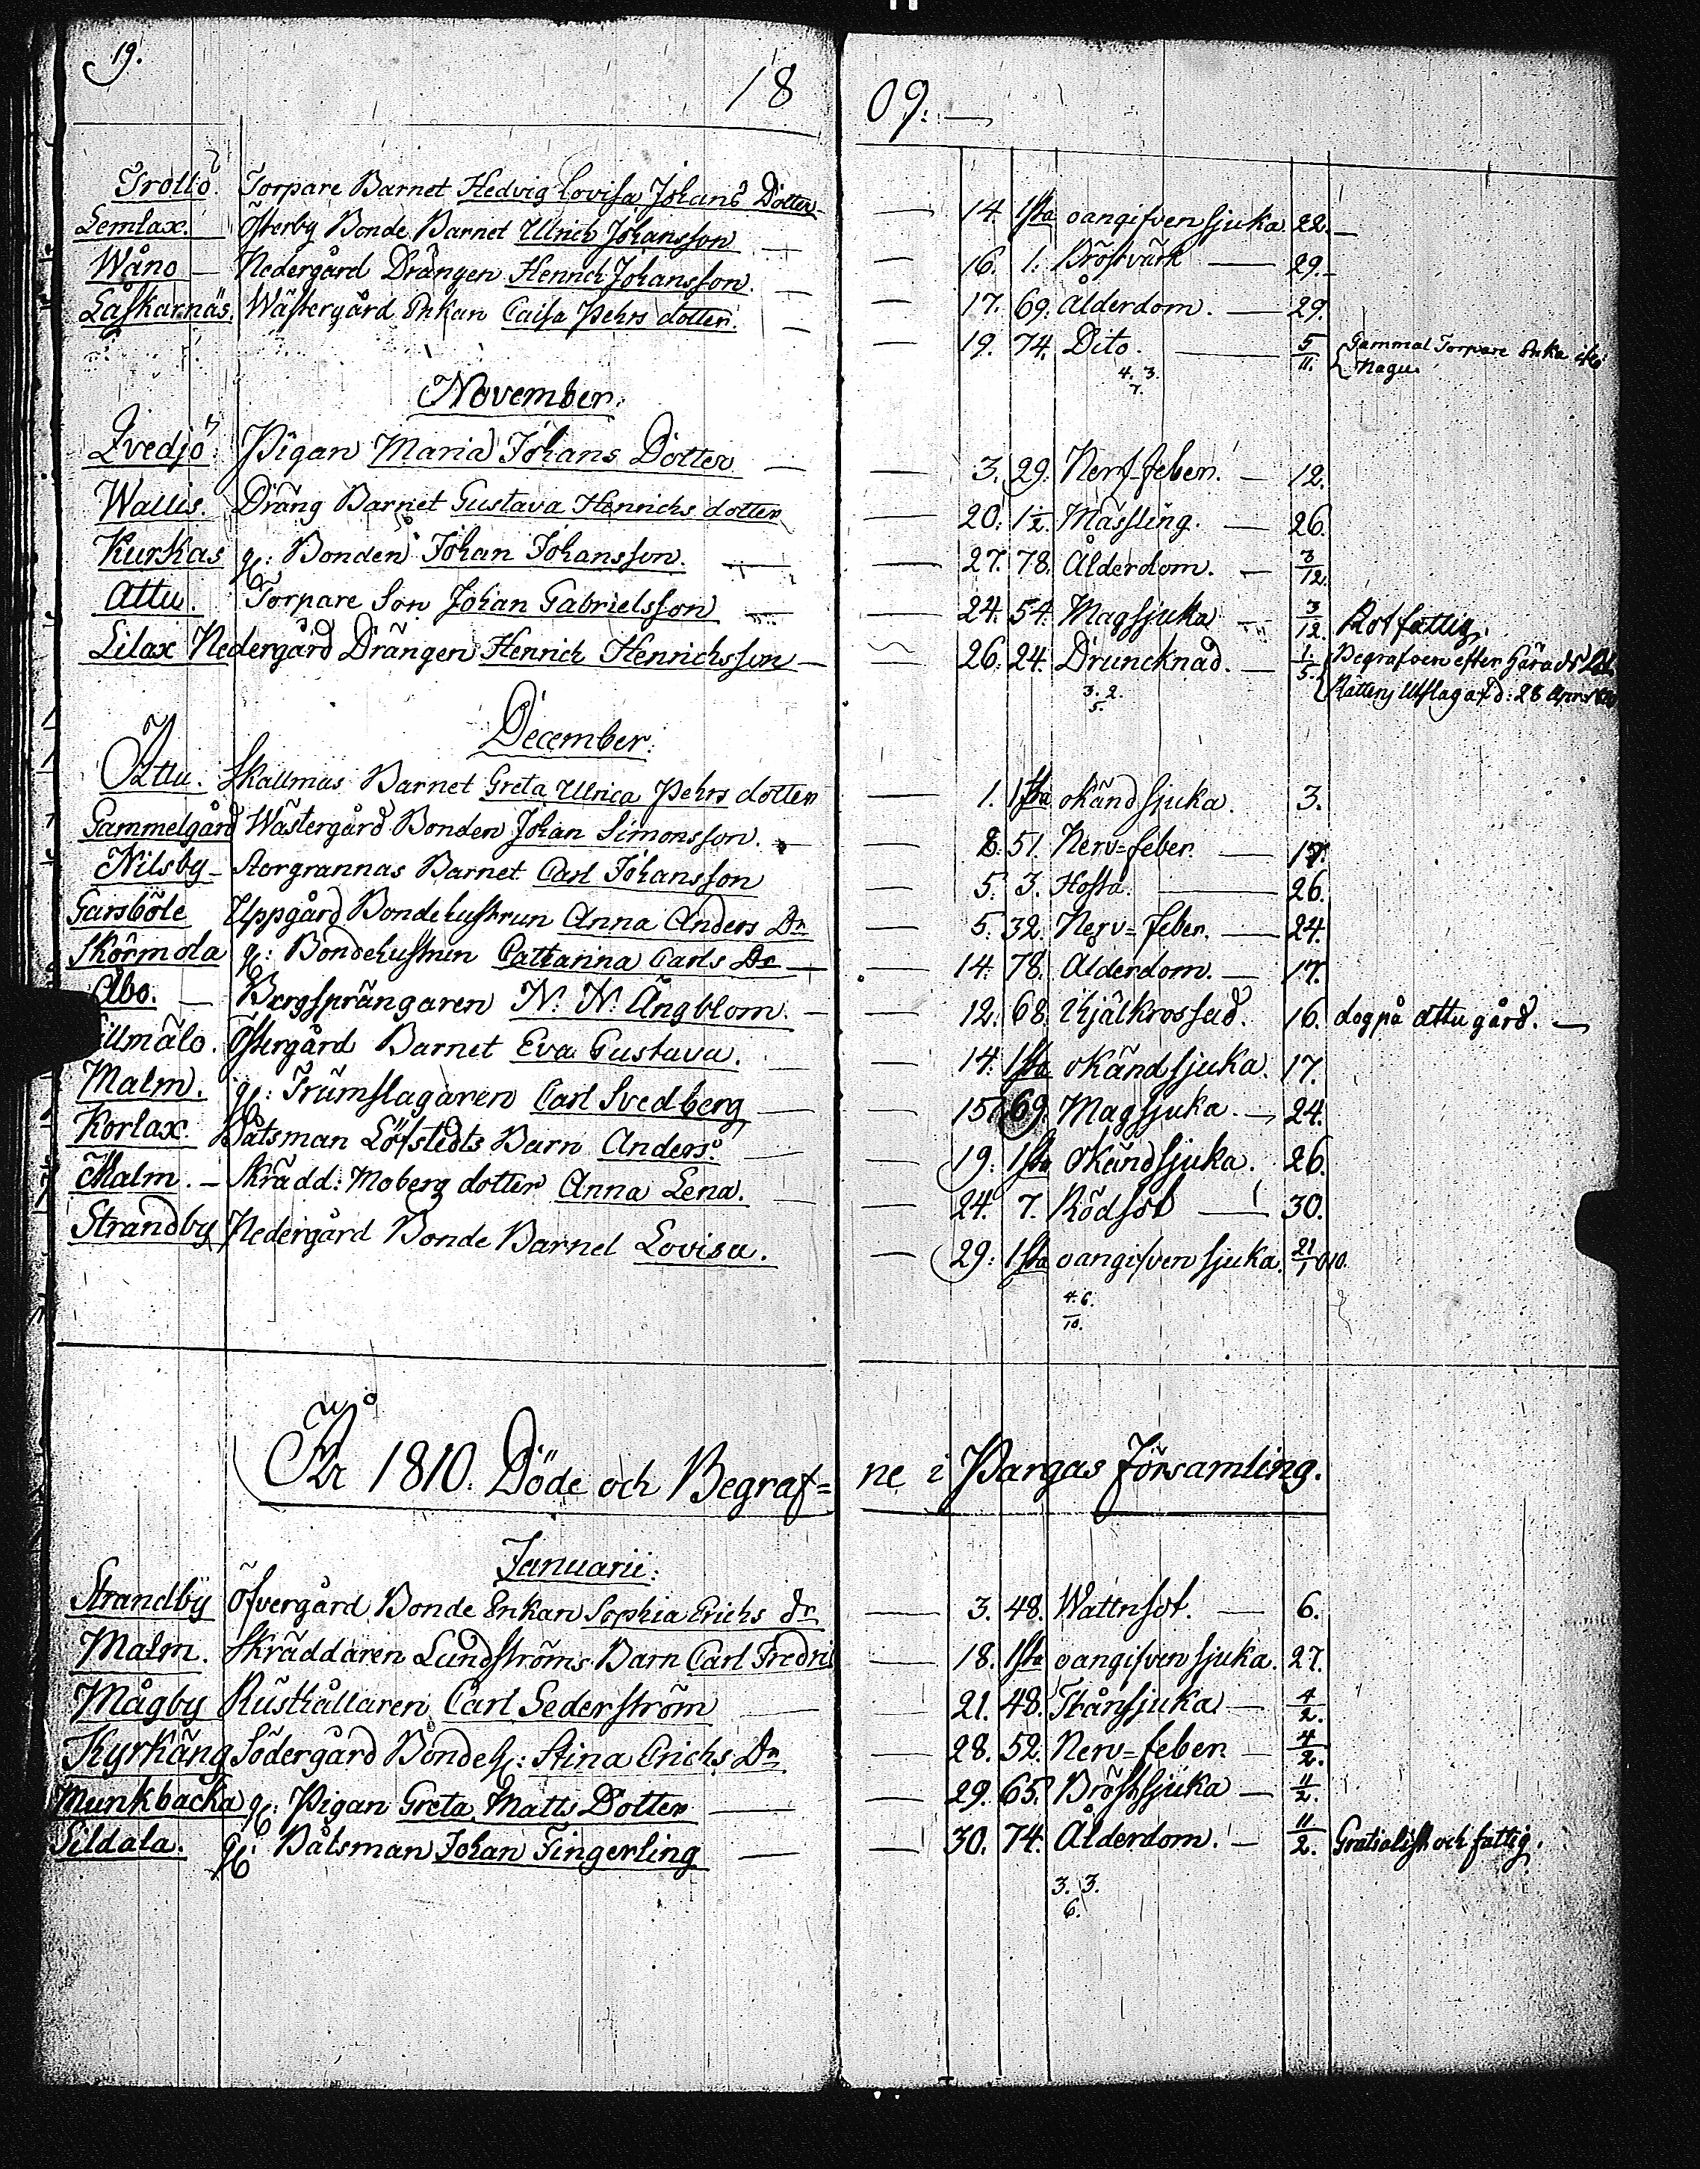 19.
18 09.
Trollö. Torpare Barnet Hedvig Lovisa Johans Dotter — 14. 1sta oangifven sjuka 22.
Lemlax. Österby Bonde Barnet Ulrich Johansson — 16. 1. Bröstvärk — 29.
Wåno — Nedergård Drängen Henrich Johansson. — 17. 69. Ålderdom. — 29.
Låskarnäs. Wästergård Enkan Caisa Pehrs dotter. — 19. 74. Dito. — 5/11. Gammal Torpare Enka
Nagu.
4. 3.
7.
November.
Qvedjö. Pigan Maria Johans Dotter — 3. 29. Nerf-feber. — 12.
Wallis. Dräng Barnet Gustava Henrichs dotter — 20. 1½. Mässling. — 26.
Kurkas qk: Bonden Johan Johansson. — 27. 78. Ålderdom. — 3/12.
Attu. Torpare Son Johan Gabrielsson — 24. 54. Magsjuka — 3/12. Rotfattig.
Lilax Nedergård Drängen Henrich Henrichsson — 26. 24. Druncknad. — 1/5. Begrafven efter Härads
Rättens Utslag af d: 28
3. 2.
5.
December.
Attu. Skallmas Barnet Greta Ulrica Pehrs dotter — 1. 1sta okänd sjuka. 3.
Gammelgård Wästergård Bonden Johan Simonsson. — 8. 51. Nerv=feber. — 17.
Nilsby — Storgrannas Barnet Carl Johansson — 5. 3. Hosta. — 26.
Garsböle Uppgård Bondehustrun Anna Anders Dr — 5. 32. Nerv=feber. — 24.
Skörmola qk: Bondehustrun Cattarina Carls Dr — 14. 78. Ålderdom. — 17.
Åbo. — Bergsprängaren N. N. Ängblom. — 12. 68. Ihjälkrossad. 16. dog på Attu gård. —
illmälo. Östergård Barnet Eva Gustava. — 14. 1sta okänd sjuka. 17.
Malm. qk: Trumslagaren Carl Svedberg — 15. 69. Magsjuka. — 24.
Korlax. Båtsman Löfstedts Barn Anders. — 19. 1sta Okänd sjuka. 26.
Malm. — Skrädd: Moberg dotter Anna Lena. — 24. 7. Rödsot — 30.
Strandby Nedergård Bonde Barnet Lovisa. — 29. 1sta oangifven sjuka. 21/1 810.
4. 6.
10.
År 1810. Döde och Begraf=ne i Pargas Församling.
Januarii.
Strandby Öfvergård Bonde Enkan Sophia Erichs dr — 3. 48. Wattnsot. — 6.
Malm. Skräddaren Lundströms Barn Carl Fredri — 18. 1sta oangifven sjuka. 27.
Mågby Rusthållaren Carl Sederström — 21. 48. Trånsjuka — 4/2.
Kyrkäng Södergård Bondeh: Stina Erichs Dr — 28. 52. Nerv=feber — 4/2.
Munkbacka qk: Pigan Greta Matts Dotter — 29. 65. Bröstsjuka — 11/2.
Sildala. qk: Båtsman Johan Fingerling — 30. 74. Ålderdom. — 11/2. Gratialist och fattig.
3. 3.
6.